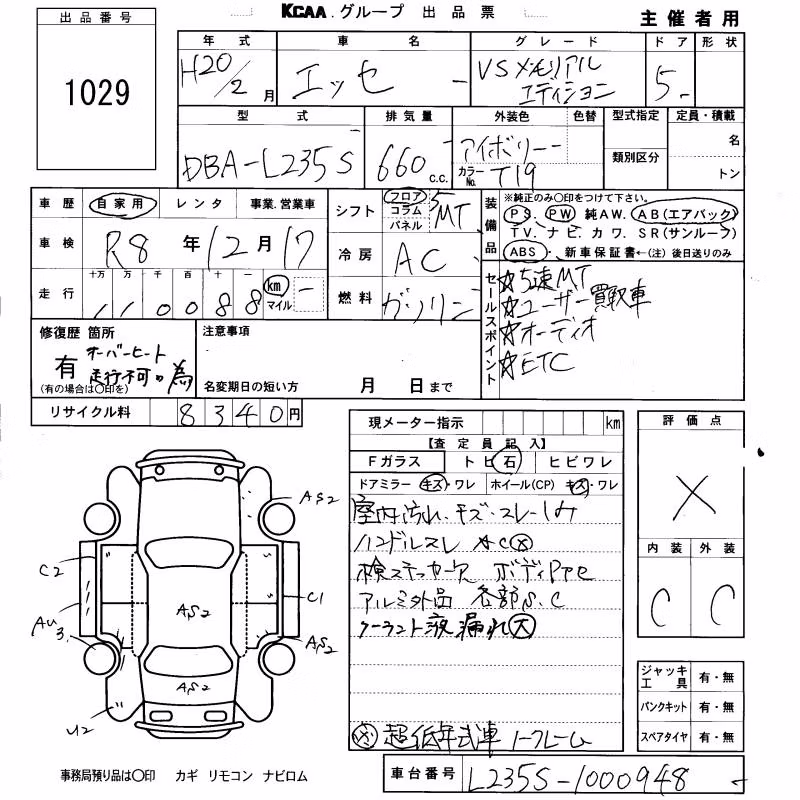 KCAA.グループ 出品票
主催者用
出品番号
1029
年式 車名 グレード ドア 形状
H20/2月 エッセ - VSメモリアルエディション 5-
型式 排気量 外装色 色替 型式指定 定員・積載
DBA-L235S 660 c.c. アイボリー - カラーNo. T19 類別区分 名 トン
車歴 自家用 レンタ 事業.営業車
シフト フロア コラム パネル 5 MT
装備品 ※純正のみ〇印をつけて下さい。
PS. PW 純AW. AB(エアバック)
TV. ナビ. カワ. SR(サンルーフ)
ABS・新車保証書←(注) 後日送りのみ
車検 R8 年 12 月 17
冷房 AC
走行 十万 万 千 百 十 一
1 1 0 0 8 8 km マイル -
燃料 ガソリン
セールスポイント
☆5速MT
☆ユーザー買取車
☆オーディオ
☆ETC
修復歴 箇所
有 オーバーヒート
走行不可の為
(有の場合は〇印を)
注意事項
名変期日の短い方 月 日まで
リサイクル料 8340円
現メーター指示 km
【査定員記入】
Fガラス トビ石 ヒビワレ
ドアミラー キズ・ワレ ホイール(CP) キズ・ワレ
室内汚れ.キズ.スレ.しみ
ハンドルスレ
検ステッカー欠
アルミ外品 各部S.C
クーラント液漏れ 大
超低年式車
評価点
X
内装 外装
C C
ジャッキ工具 有・無
パンクキット 有・無
スペアタイヤ 有・無
AS2
C2
C1
AS2
AU3.
AS2
AS2
U2
事務局預り品は〇印 カギ リモコン ナビロム
車台番号 L235S-1000948